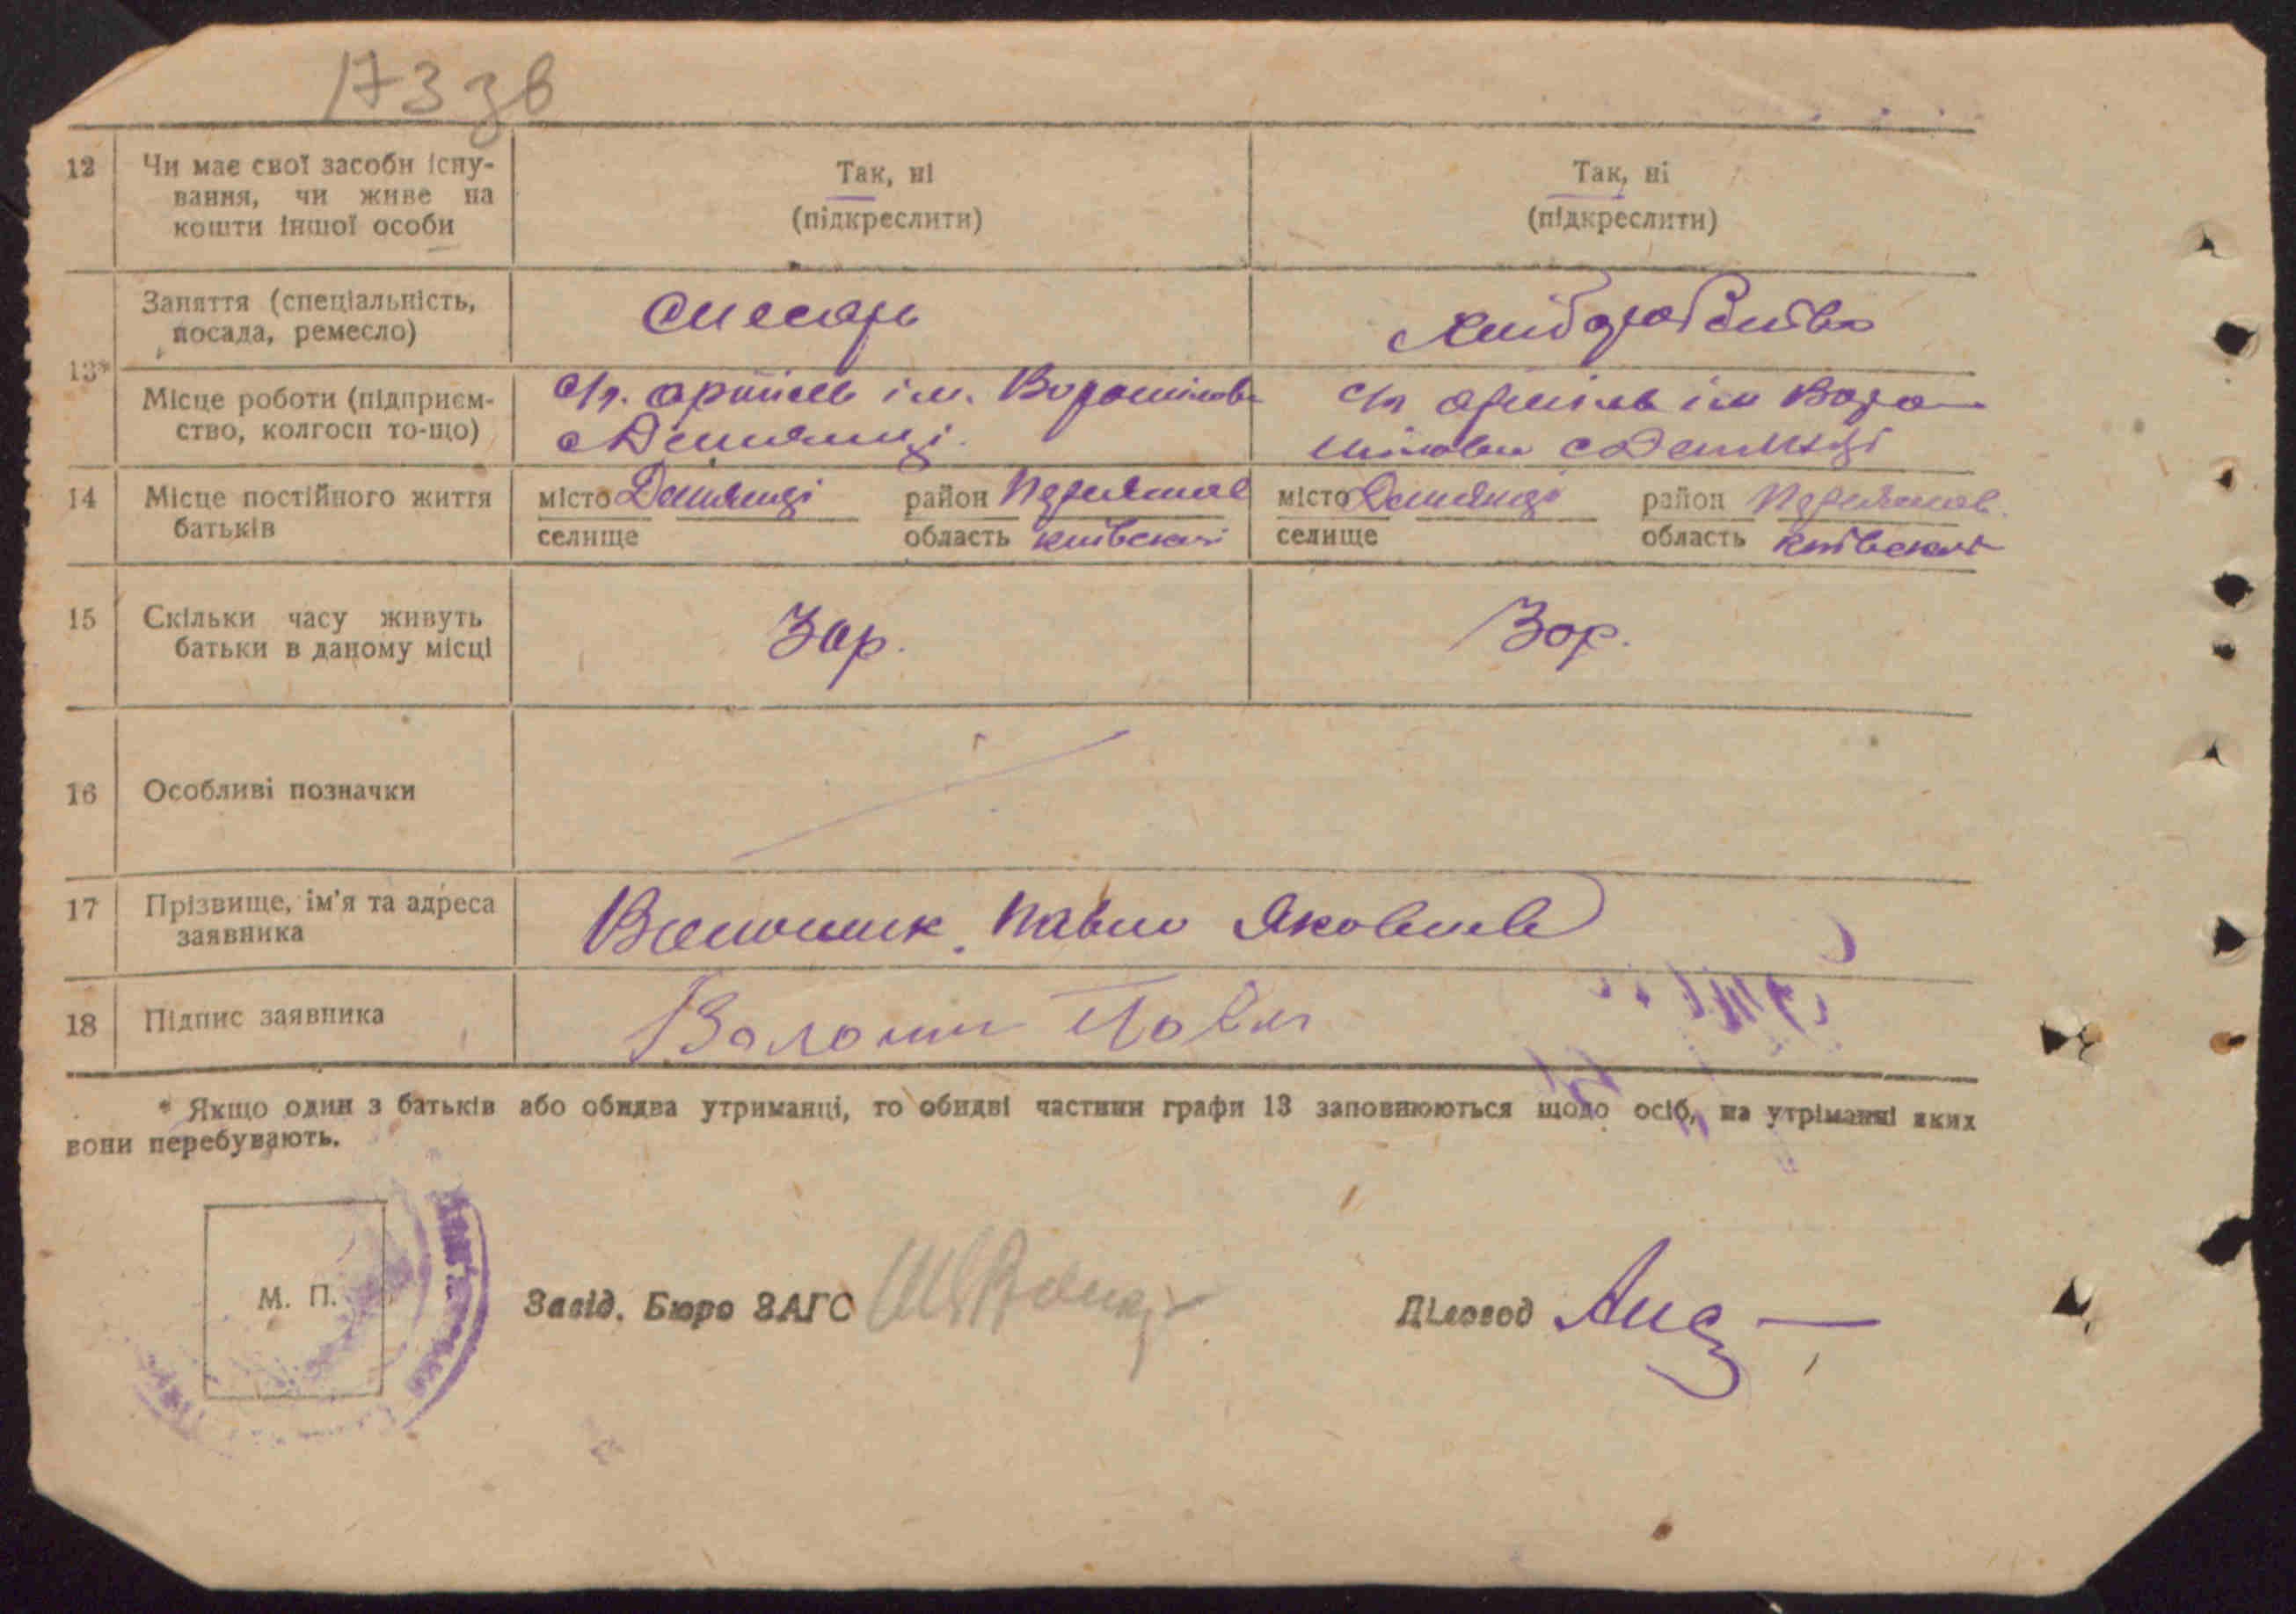 173 зв
12 Чи має свої засоби існу-
вання, чи живе на
кошти іншої особи
Так, ні
(підкреслити)
Так, ні
(підкреслити)
13*
Заняття (спеціальність,
посада, ремесло)
Слесарь
Хліборобство
Місце роботи (підприєм-
ство, колгосп то-що)
с/г. артіль ім. Ворошілова
с Дем'янці.
с/г артіль ім Воро
шілова с Дем'янці
14 Місце постійного життя
батьків
місто Дем'янці район Переяслав
селище область київская
місто Дем'янці район Переяслав.
селище область київская
15 Скільки часу живуть
батьки в даному місці
Зор.
Зор.
16 Особливі позначки
17 Прізвище, ім'я та адреса
заявника
Волошик Павло Яковлев
18 Підпис заявника
Волошин Павл
* Якщо один з батьків або обидва утриманці, то обидві частини графи 13 заповнюються щодо осіб, на утріманні яких
вони перебувають.
М. П.
Завід. Бюро ЗАГС
Діловод